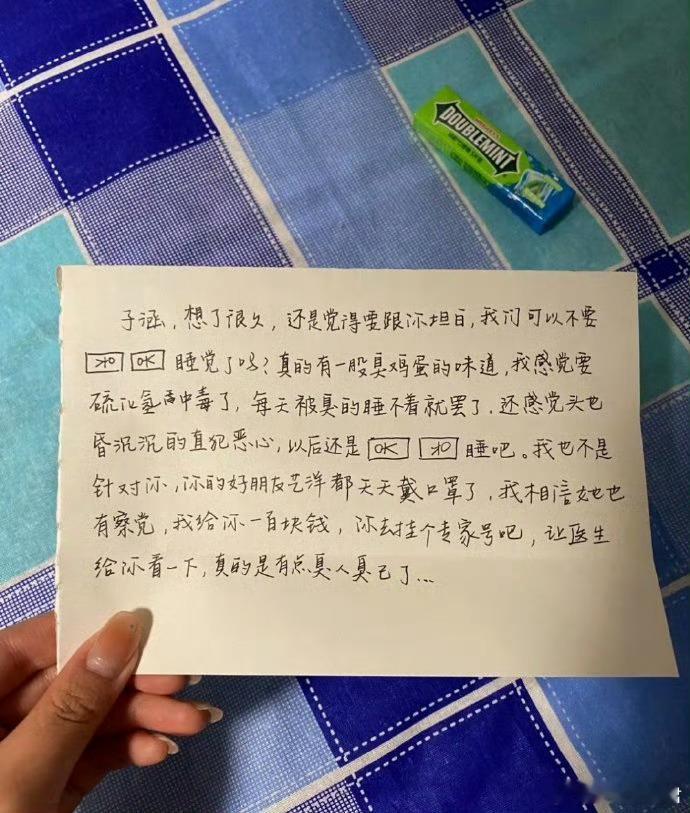 DOUBLEMINT
子涵，想了很久，还是觉得要跟你坦白，我们可以不要
OK OK 睡觉了吗？真的有一股臭鸡蛋的味道，我感觉要
硫化氢中毒了，每天被臭的睡不着就罢了，还感觉头也
昏沉沉的直犯恶心，以后还是 OK OK 睡吧。我也不是
针对你，你的好朋友艺洋都天天戴口罩了，我相信她也
有察觉，我给你一百块钱，你去挂个专家号吧，让医生
给你看一下，真的是有点臭人臭己了...